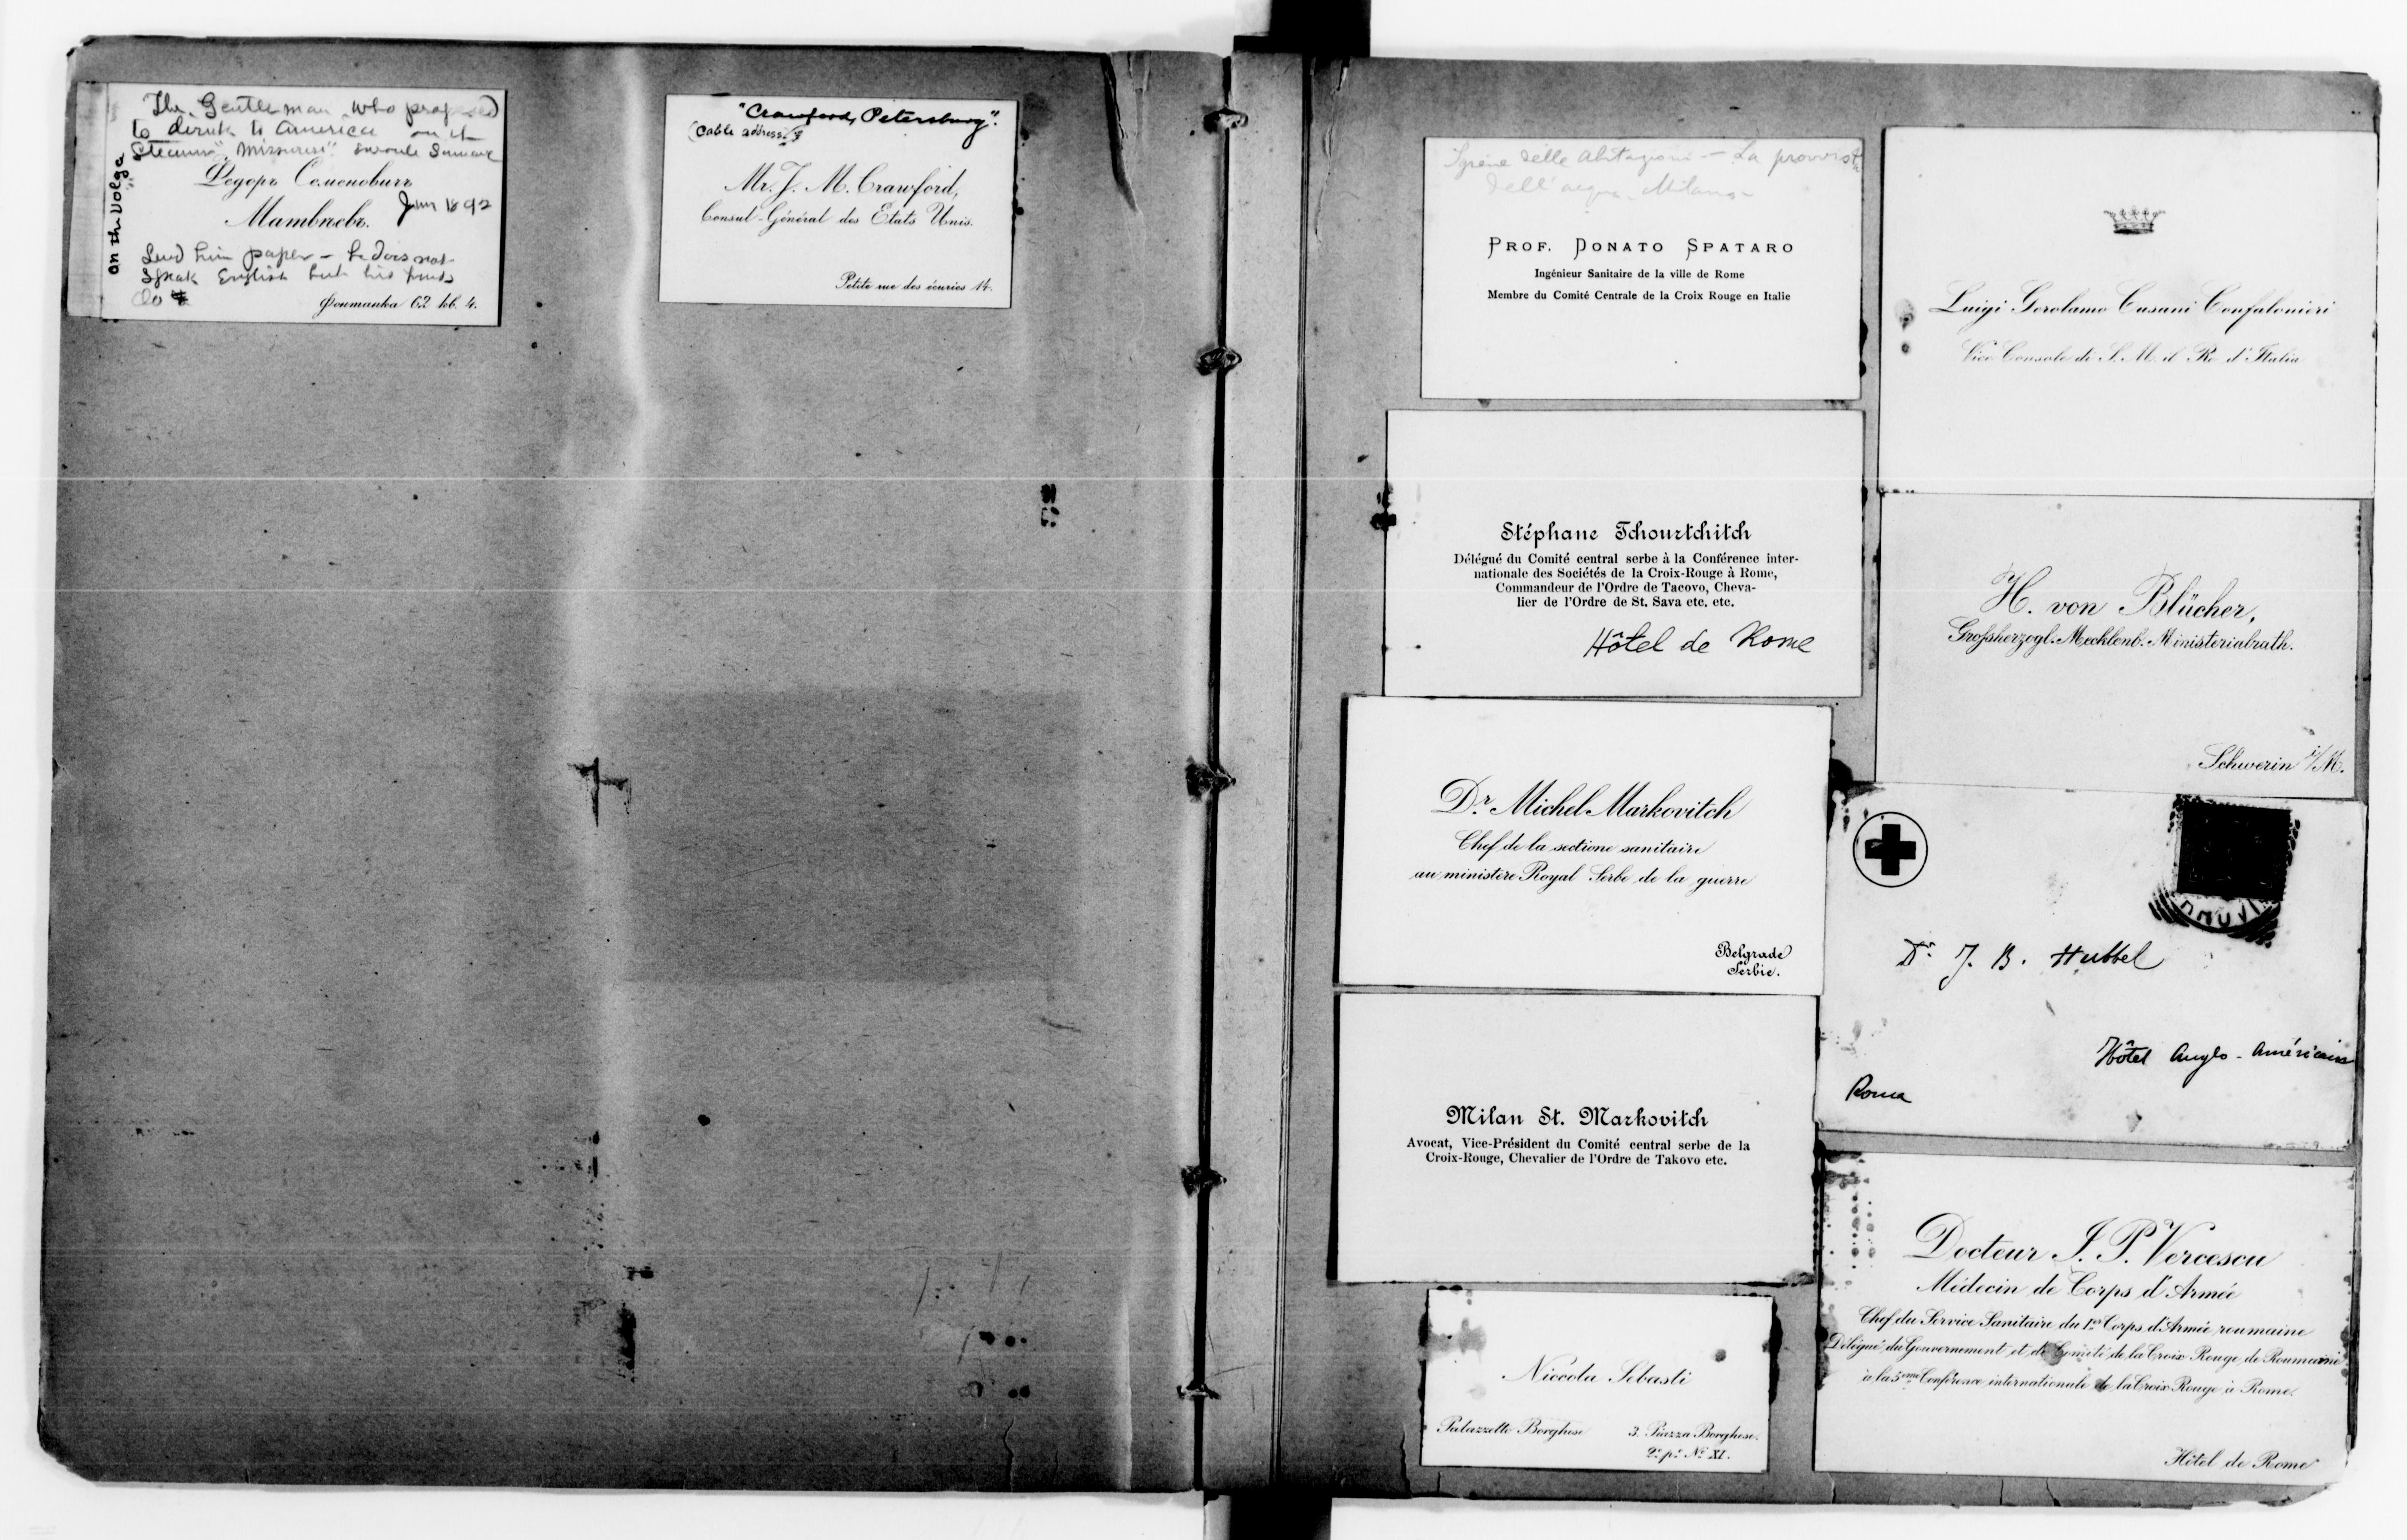 The Gentleman who proposed
to drink to America on st
Steamer "Missouri" enroute Samara
on the Volga
Ѳедоръ Семеновичъ
Матвѣевъ.
Jun 1892
Send him paper – he does not
speak English but his friends
do
Фонтанка 62 кв. 4.
"Crawford, Petersburg".
(Cable address)
Mr. J. M. Crawford,
Consul-Général des Etats Unis.
Petite rue des écuries 14.
Igiene delle abitazioni – La provvista
dell'acqua. Milano –
PROF. DONATO SPATARO
Ingénieur Sanitaire de la ville de Rome
Membre du Comité Centrale de la Croix Rouge en Italie
Stéphane Tchourtchitch
Délégué du Comité central serbe à la Conférence inter-
nationale des Sociétés de la Croix-Rouge à Rome,
Commandeur de l'Ordre de Tacovo, Cheva-
lier de l'Ordre de St. Sava etc. etc.
Hôtel de Rome
Dr. Michel Markovitch
Chef de la sectione sanitaire
au ministère Royal Serbe de la guerre
Belgrade
Serbie.
Milan St. Markovitch
Avocat, Vice-Président du Comité central serbe de la
Croix-Rouge, Chevalier de l'Ordre de Takovo etc.
Niccola Sebasti
Palazzetto Borghese 3. Piazza Borghese.
2º pº Nº XI.
Luigi Gerolamo Cusani Confalonieri
Vice Console di S. M. il Re d'Italia
H. von Blücher,
Grossherzogl. Mecklenb. Ministerialrath.
Schwerin i/M.
Dr. J. B. Hubbel
Hôtel Anglo-Américain
Roma
Docteur I. P. Vercescu
Médecin de Corps d'Armée
Chef du Service Sanitaire du 1er Corps d'Armée roumaine
Délégué du Gouvernement et du Comité de la Croix Rouge de Roumanie
à la 5eme Conférence internationale de la Croix Rouge à Rome.
Hôtel de Rome